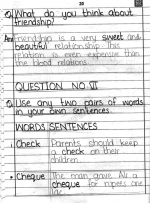 20
Q What do you think about
friendship?
Ans Friendship is a very sweet and
beautiful relationship. This
relation is even expensive than
the blood relations.
QUESTION NO. VI
Q Use any two pairs of words
in your own sentences.
WORDS SENTENCES
Check Parents should keep
a check on their
children.
Cheque The man gave Ali a
cheque for rupees one